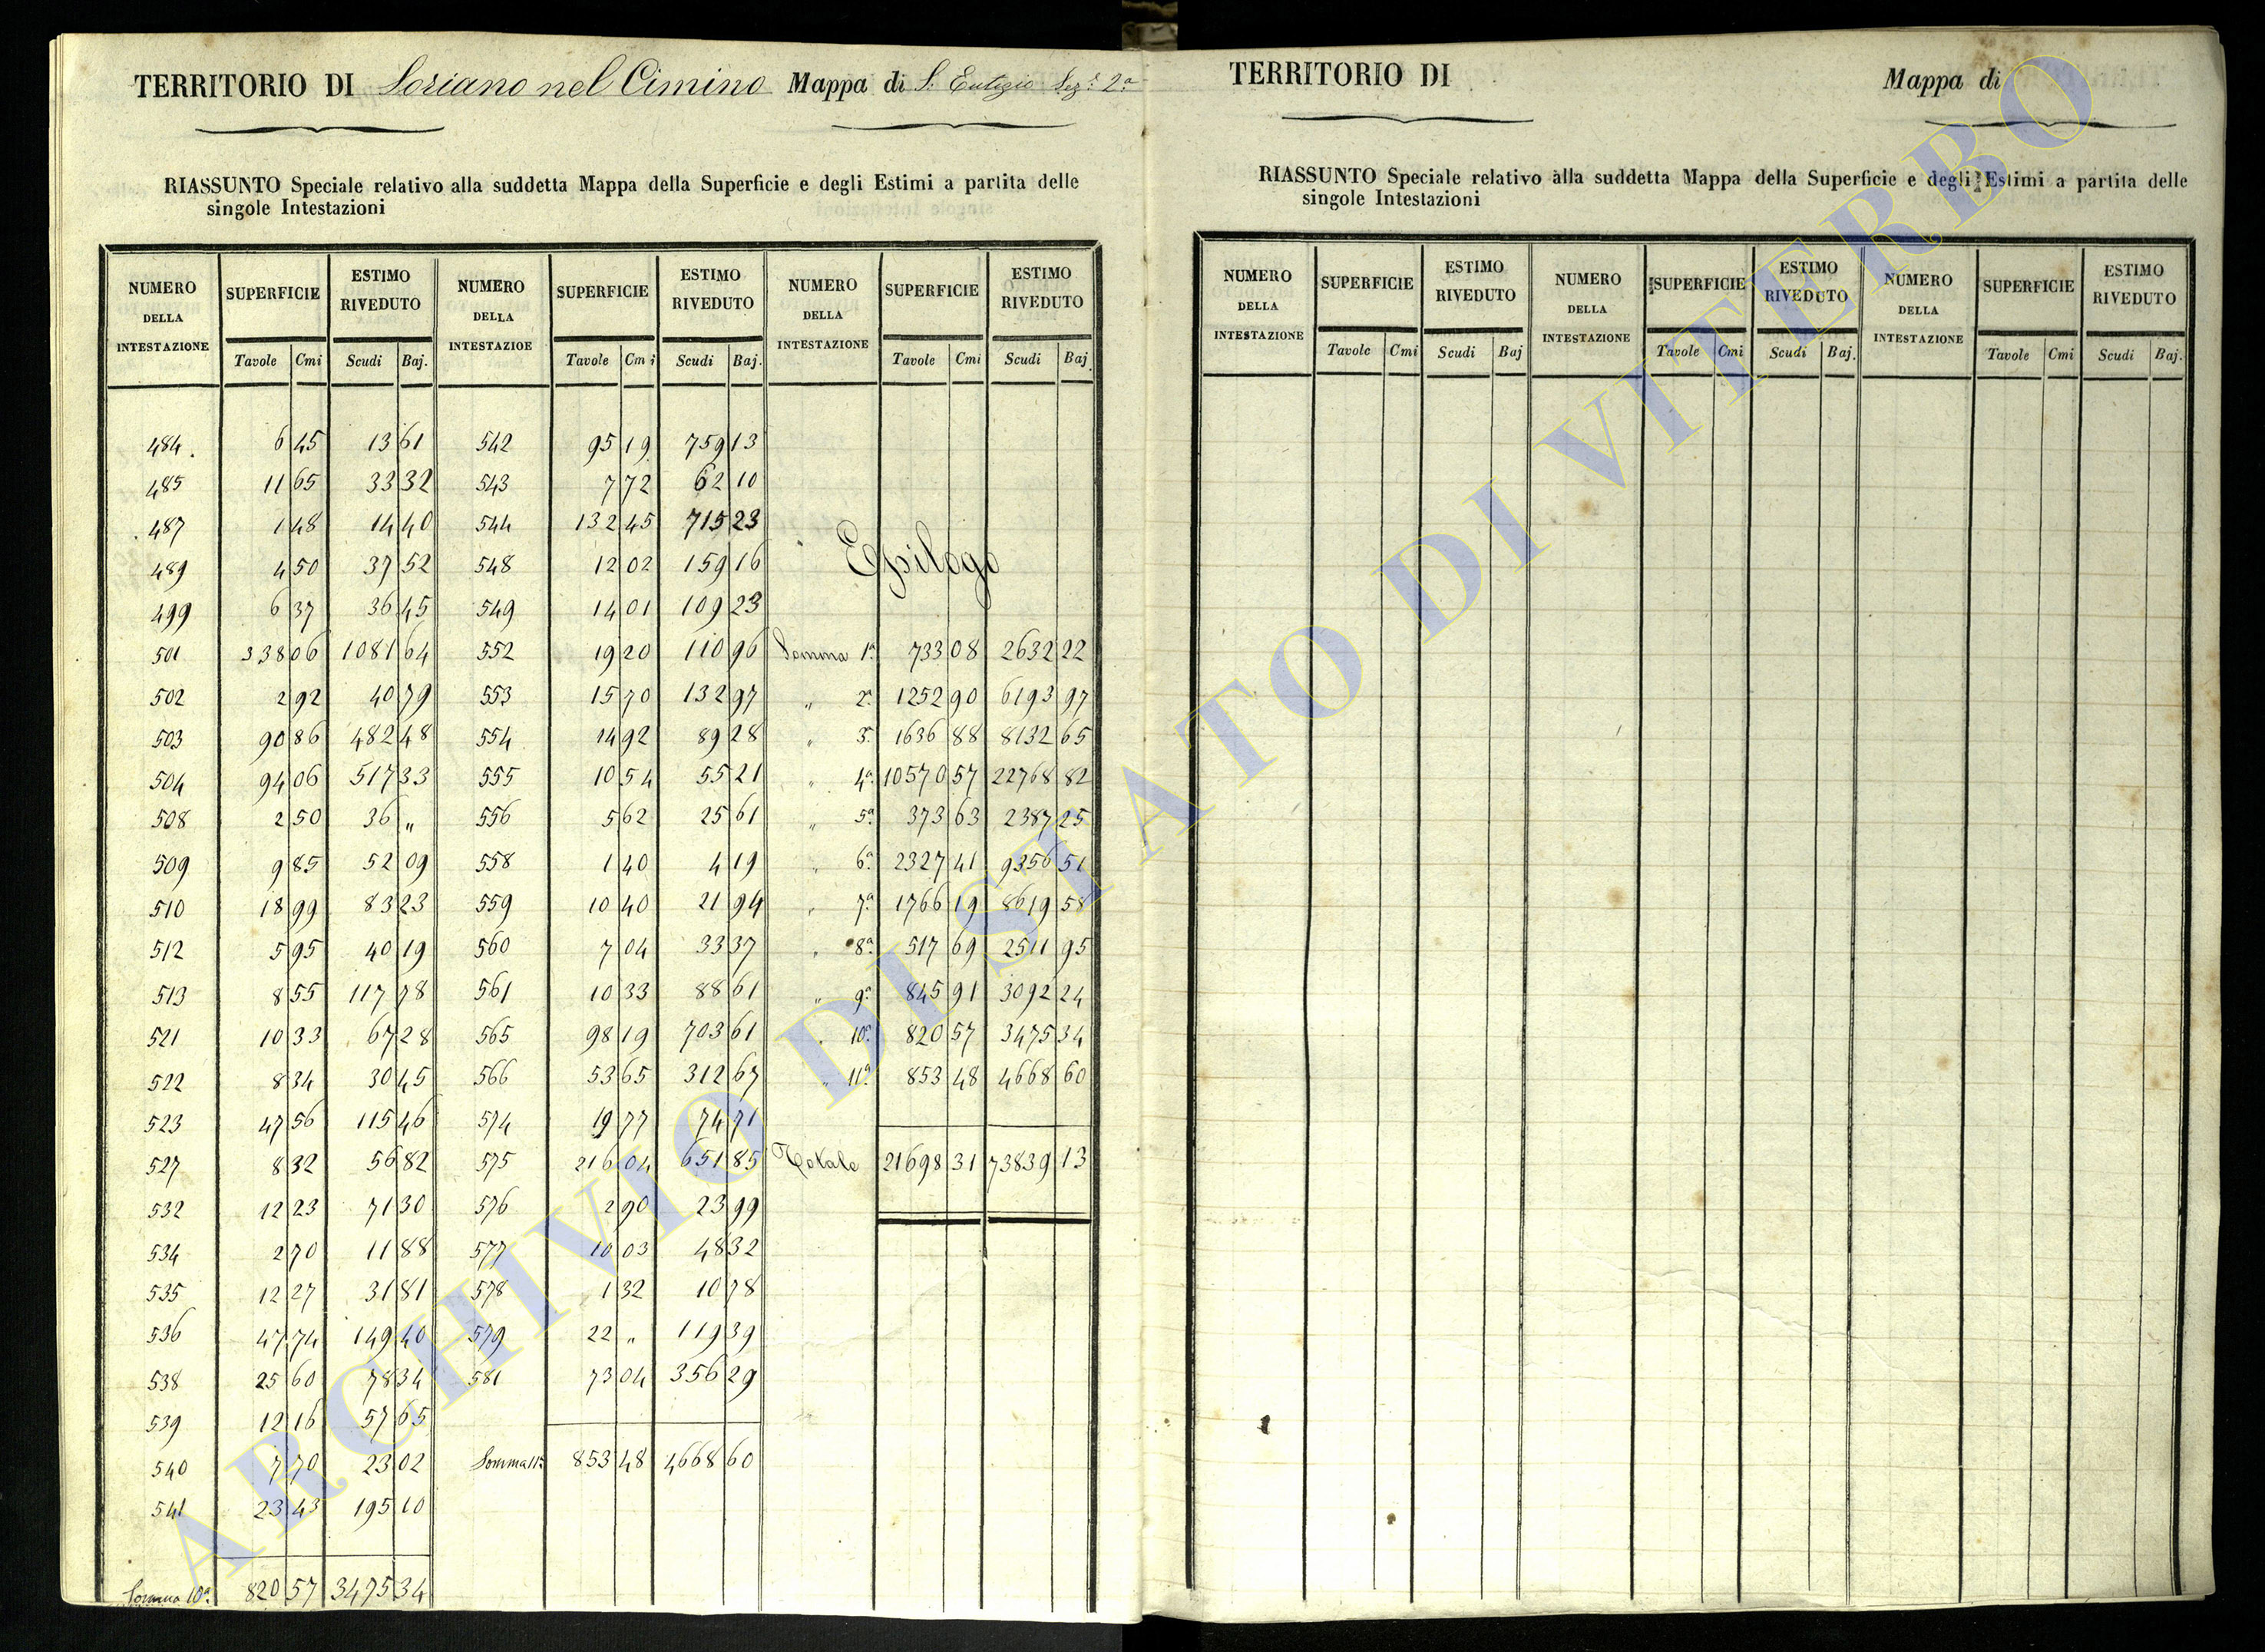 TERRITORIO DI Soriano nel Cimino Mappa di S. Eutizio Sez.e 2a
RIASSUNTO Speciale relativo alla suddetta Mappa della Superficie e degli Estimi a partita delle
singole Intestazioni
NUMERO DELLA INTESTAZIONE SUPERFICIE ESTIMO RIVEDUTO NUMERO DELLA INTESTAZIOE SUPERFICIE ESTIMO RIVEDUTO NUMERO DELLA INTESTAZIONE SUPERFICIE ESTIMO RIVEDUTO
Tavole Cmi Scudi Baj. Tavole Cmi Scudi Baj. Tavole Cmi Scudi Baj.
484. 6 45 13 61 542 95 19 759 13
485 11 65 33 32 543 7 72 62 10
487 1 48 14 40 544 132 45 715 23
489 4 50 37 52 548 12 02 159 16 Epilogo
499 6 37 36 45 549 14 01 109 23
501 338 06 1081 64 552 19 20 110 96 Somma 1a 733 08 2632 22
502 2 92 40 79 553 15 70 132 97 " 2a 1252 90 6193 97
503 90 86 482 48 554 14 92 89 28 " 3a 1636 88 8132 65
504 94 06 517 33 555 10 54 55 21 " 4a 10570 57 22768 82
508 2 50 36 " 556 5 62 25 61 " 5a 373 63 2387 25
509 9 85 52 09 558 1 40 4 19 " 6a 2327 41 9356 51
510 18 99 83 23 559 10 40 21 94 " 7a 1766 19 8619 58
512 5 95 40 19 560 7 04 33 37 " 8a 517 69 2511 95
513 8 55 117 78 561 10 33 88 61 " 9a 845 91 3092 24
521 10 33 67 28 565 98 19 703 61 " 10a 820 57 3475 34
522 8 34 30 45 566 53 65 312 67 " 11a 853 48 4668 60
523 47 56 115 46 574 19 77 74 71
527 8 32 56 82 575 216 04 651 85 Totale 21698 31 73839 13
532 12 23 71 30 576 2 90 23 99
534 2 70 11 88 577 10 03 48 32
535 12 27 31 81 578 1 32 10 78
536 47 74 149 40 579 22 " 119 39
538 25 60 78 34 581 73 04 356 29
539 12 16 57 65
540 7 70 23 02 Somma 11a 853 48 4668 60
541 23 43 195 10
Somma 10a 820 57 3475 34
TERRITORIO DI Mappa di
RIASSUNTO Speciale relativo alla suddetta Mappa della Superficie e degli Estimi a partita delle
singole Intestazioni
NUMERO DELLA INTESTAZIONE SUPERFICIE ESTIMO RIVEDUTO NUMERO DELLA INTESTAZIONE SUPERFICIE ESTIMO RIVEDUTO NUMERO DELLA INTESTAZIONE SUPERFICIE ESTIMO RIVEDUTO
Tavole Cmi Scudi Baj Tavole Cmi Scudi Baj. Tavole Cmi Scudi Baj.
ARCHIVIO DI STATO DI VITERBO